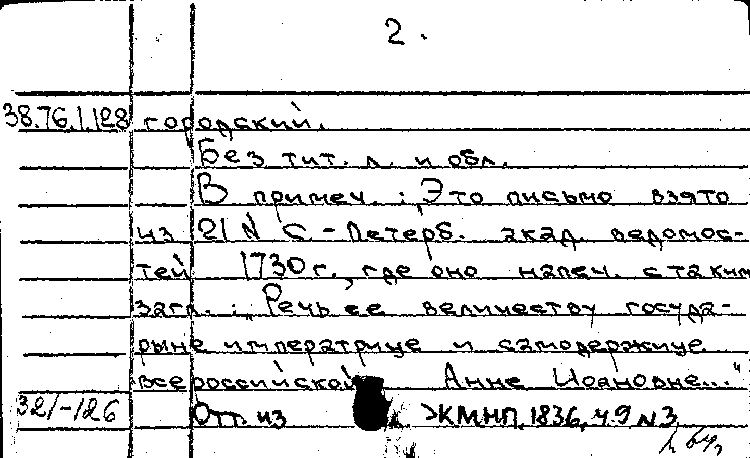 2.
38.76.1.128 городский.
Без тит. л. и обл.
В примеч.: „Это письмо взято
из 21 N С.-Петерб. акад. ведомос-
тей 1730 г., где оно напеч. с таким
загл.: „Речь ее величеству госуда-
рыне императрице и самодержице
всероссийской Анне Иоановне..."
321-126 Отт. из ЖМНП, 1836, ч. 9 N 3